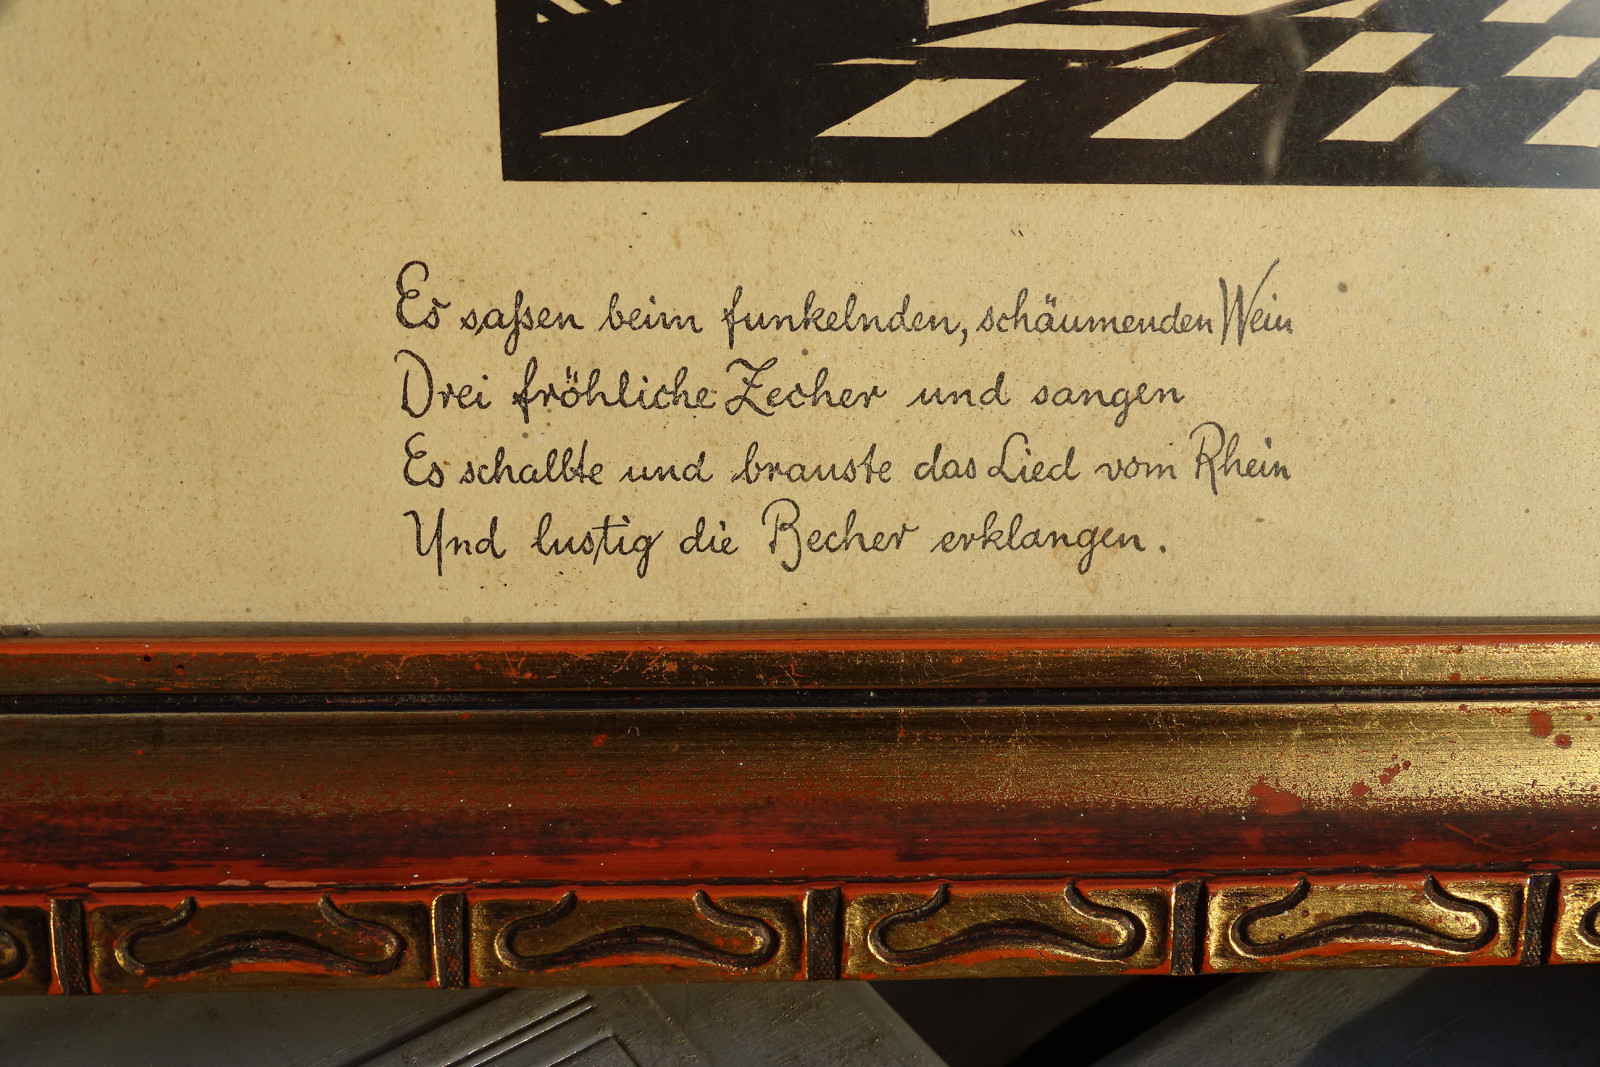 Es saßen beim funkelnden, schäumenden Wein
Drei fröhliche Zecher und sangen
Es schallte und brauste das Lied vom Rhein
Und lustig die Becher erklangen.